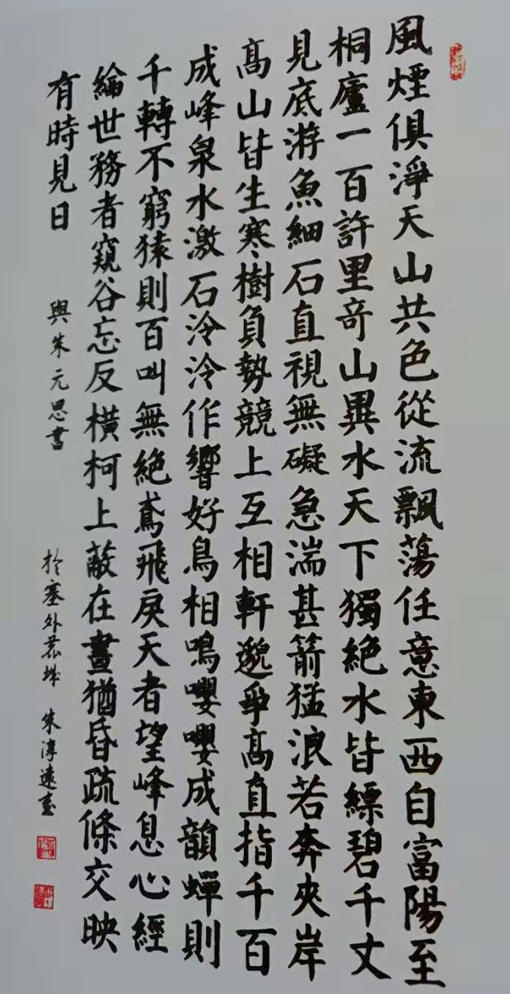 風煙俱淨天山共色從流飄蕩任意東西自富陽至
桐廬一百許里竒山異水天下獨絕水皆縹碧千丈
見底游魚細石直視無礙急湍甚箭猛浪若奔夾岸
髙山皆生寒樹負勢競上互相軒邈爭髙直指千百
成峰泉水激石泠泠作響好鳥相鳴嚶嚶成韻蟬則
千轉不窮猿則百叫無絕鳶飛戾天者望峰息心經
綸世務者窺谷忘反橫柯上蔽在晝猶昏疏條交映
有時見日
與朱元思書
於塞外 朱淳遠